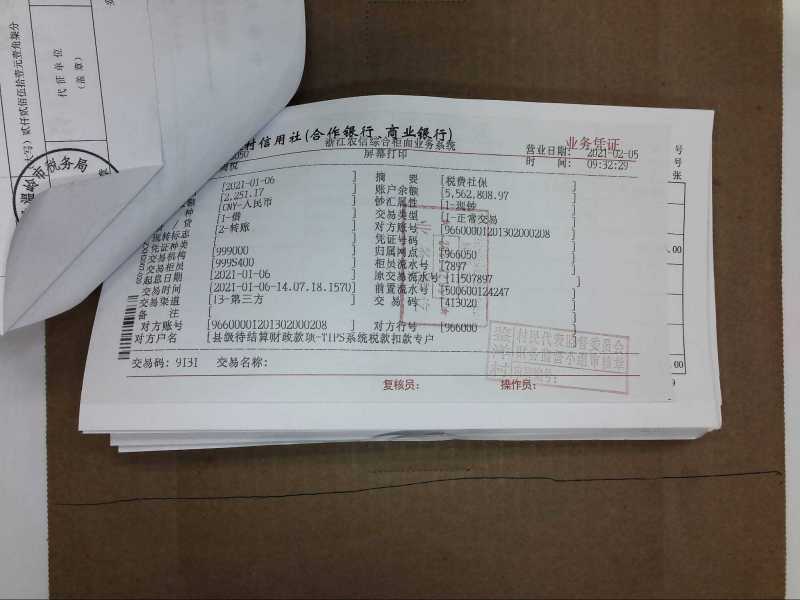 贰仟贰佰伍拾壹元壹角柒分
代征单位
(盖章)
温岭市税务局
村信用社(合作银行、商业银行)
业务凭证
浙江农信综合柜面业务系统
屏幕打印
营业日期: 2021-02-05
时 间: 09:32:29
号
号
张
[2021-01-06 ] 摘 要 [税费社保 ]
[2,251.17 ] 账户余额 [5,562,808.97 ]
[CNY-人民币 ] 钞汇属性 [1-现钞 ]
[1-借 ] 交易类型 [1-正常交易 ]
现转标志 [2-转账 ] 对方账号 [966000012013020002​08 ]
凭证种类 [ ] 凭证号码 [ ]
交易机构 [999000 ] 归属网点 [966050 ]
交易柜员 [999S400 ] 柜员流水号 [7897 ]
起息日期 [2021-01-06 ] 原交易流水号 [11507897 ]
交易时间 [2021-01-06-14.07.18.1570] 前置流水号 [500600124247 ]
交易渠道 [13-第三方 ] 交 易 码 [413020 ]
备 注 [ ]
对方账号 [96600001201302000208 ] 对方行号 [966000 ]
对方户名 [县级待结算财政款项-TIPS系统税款扣款专户 ]
交易码: 9131 交易名称:
村民代表监督委员会
财务监督小组审核章
复核员: 操作员: